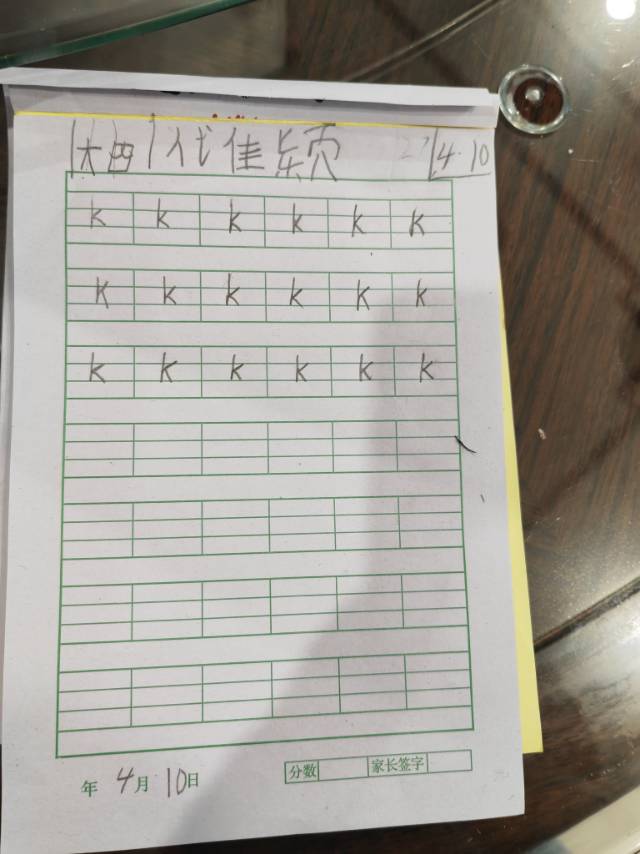 大四 代佳颖 4.10
k k k k k k
k k k k k k
k k k k k k
年 4月 10日 分数 家长签字